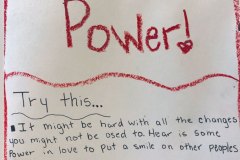 Power!
Try this...
▪It might be hard with all the changes
you might not be used to. Hear is some
Power in love to put a smile on other peoples